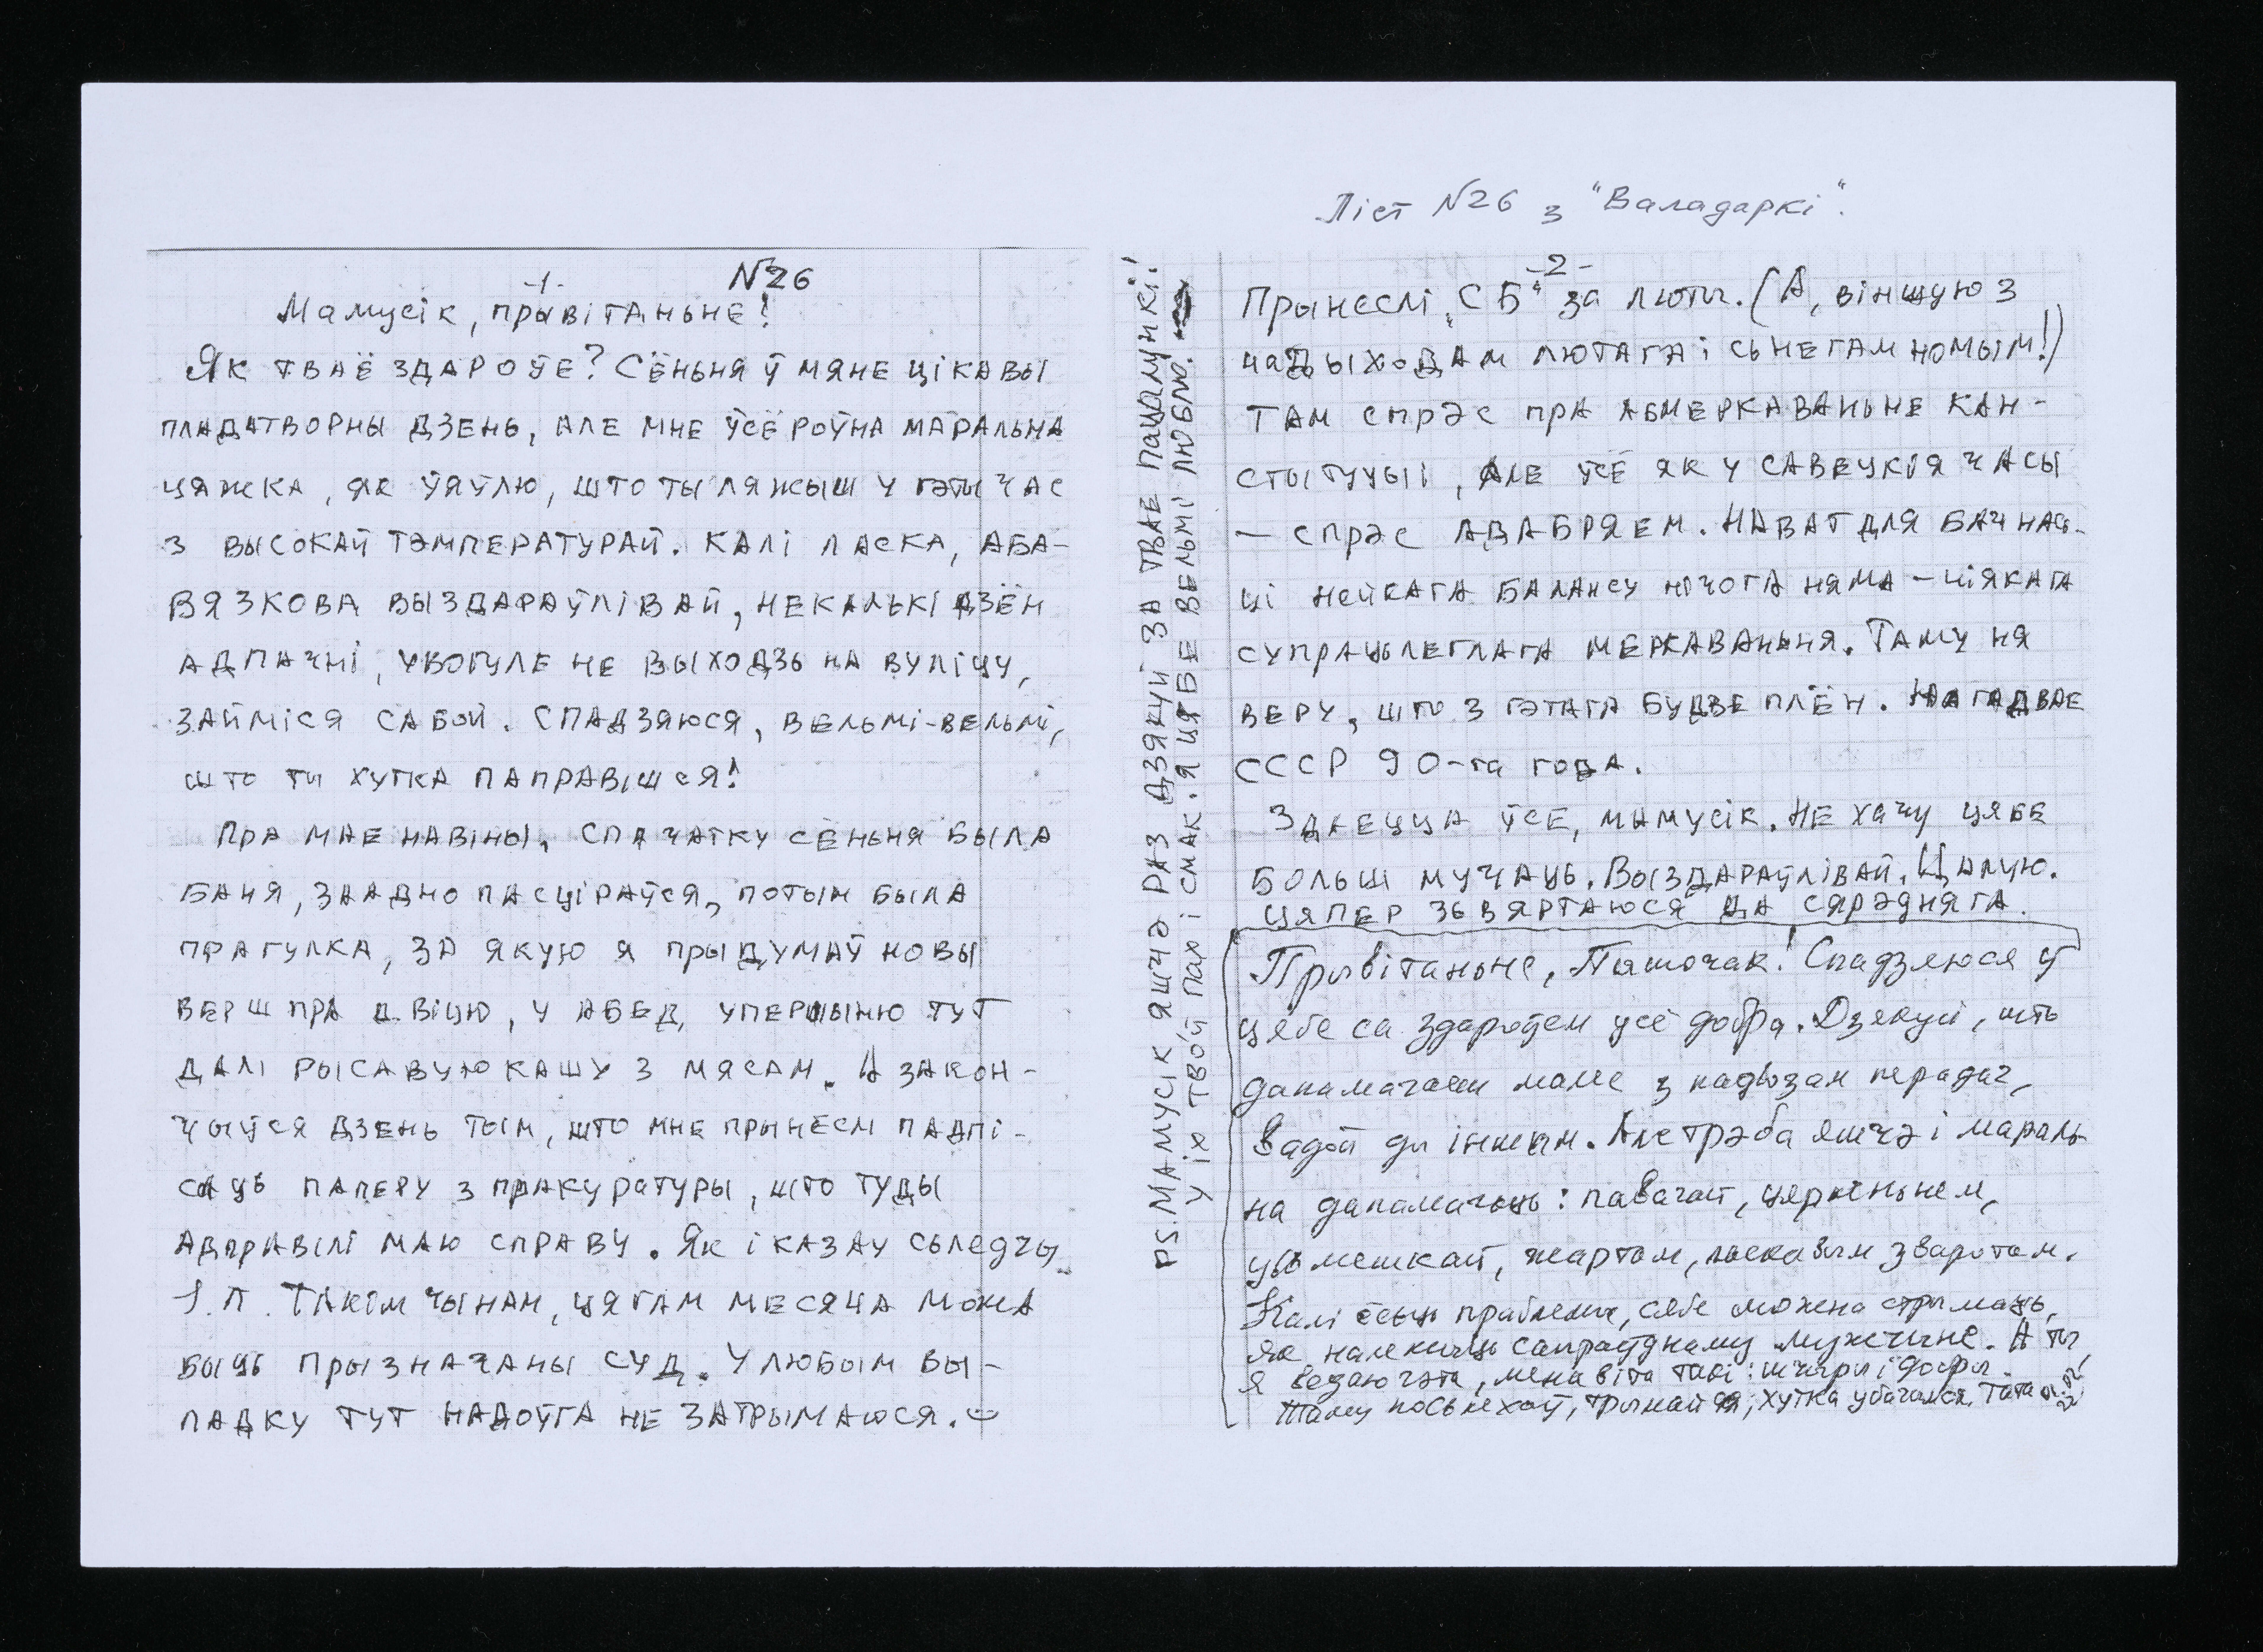 Ліст N26 з "Валадаркі".
-1-
N26
Мамусік, прывітаньне!
Як тваё здароўе? Сёньня ў мяне цікавы
пладатворны дзень, але мне ўсё роўна маральна
цяжка, як ўяўлю, што ты ляжыш у гэты час
з высокай тэмпературай. Калі ласка, аба-
вязкова выздараўлівай, некалькі дзён
адпачні, увогуле не выходзь на вуліцу,
займіся сабой. Спадзяюся, вельмі-вельмі,
што ты хутка паправішся!
Пра мае навіны. Спачатку сёньня была
баня, заадно пасціраўся, потым была
прагулка, за якую я прыдумаў новы
верш пра Дзвіцю, у абед упершыню тут
далі рысавую кашу з мясам. А закон-
чыўся дзень тым, што мне прынеслі падпі-
саць паперу з пракуратуры, што туды
адправілі маю справу. Як і казау сьледчы
І.П. Такім чынам, цягам месяца можа
быць прызначаны суд. У любым вы-
падку тут надоўга не затрымаюся.
PS. Мамусік яшчэ раз дзякуй за твае пацалункі!
У іх твой пах і смак. Я цябе вельмі люблю.
-2-
Прынеслі „СБ" за люты. (А, віншую з
надыходам лютага і сьнегам                 !)
Там спрэс пра абмеркаваньне кан-
стытуцыі, але ўсё як у савецкія часы
– спрэс адабряем. Нават для бачнас-
ці нейкага балансу нічога няма – ніякага
супрацьлеглага меркаваньня. Таму ня
веру, што з гэтага будзе плён. Нагадвае
СССР 90-га года.
Здаецца ўсё, мамусік. Не хачу цябе
больш мучаць. Выздараўлівай. Цалую.
Цяпер зьвяртаюся да сярэдняга.
Прывітаньне, Пяшочак! Спадзяюся ў
цябе са здароўем усё добра. Дзякуй, што
дапамагаеш маме з падвозам перадач,
вадой ды іншым. Але трэба яшчэ і мараль-
на дапамагаць: павагай, цярпеньнем,
усьмешкай, жартам, ласкавым зваротам.
Калі ёсьць праблемы, сябе можна стрымаць,
як належыць сапраўднаму мужчыне. А ты,
я ведаю гэта, менавіта такі: шчыры і добры.
Таму посьпехаў, трымайся, хутка убачымся. Тата